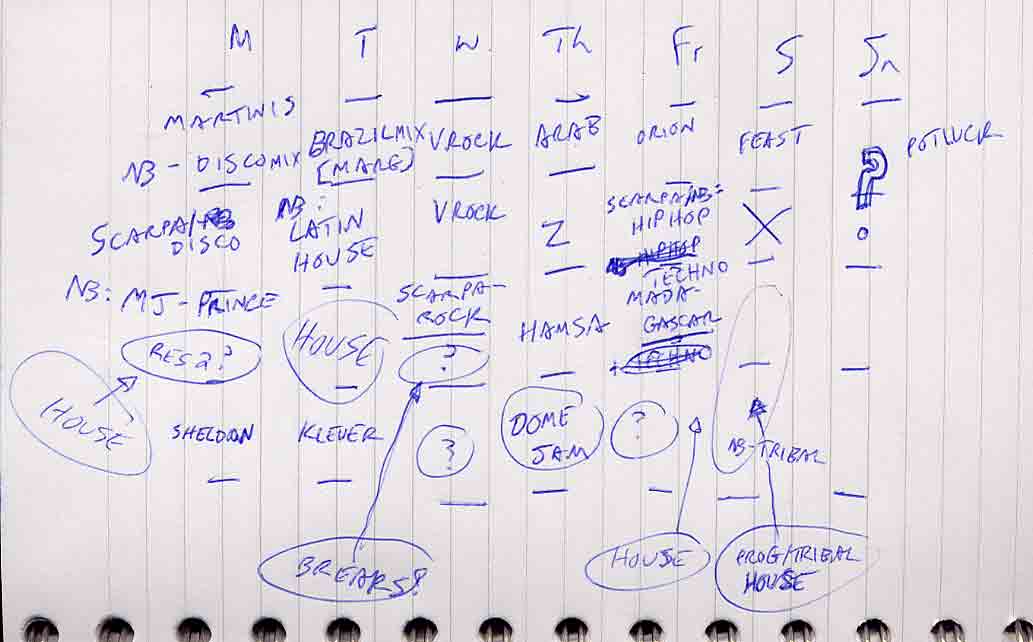 M T W. Th Fr S Sn
MARTINIS BRAZILMIX VROCK ARAB ORION FEAST POTLUCK
NB - DISCOMIX [MARG] ?
SCARPA/NB NB: VROCK Z SCARPA/NB: X
DISCO LATIN HIPHOP
HOUSE HIPHOP
TECHNO
NB: MJ - PRINCE SCARPA- MADA-
ROCK HAMSA GASCAR
RES2? HOUSE ? + TECHNO
HOUSE
SHELDON KLEVER ? DOME ? NB-TRIBAL
JAM
BREAKS? HOUSE PROG/TRIBAL
HOUSE